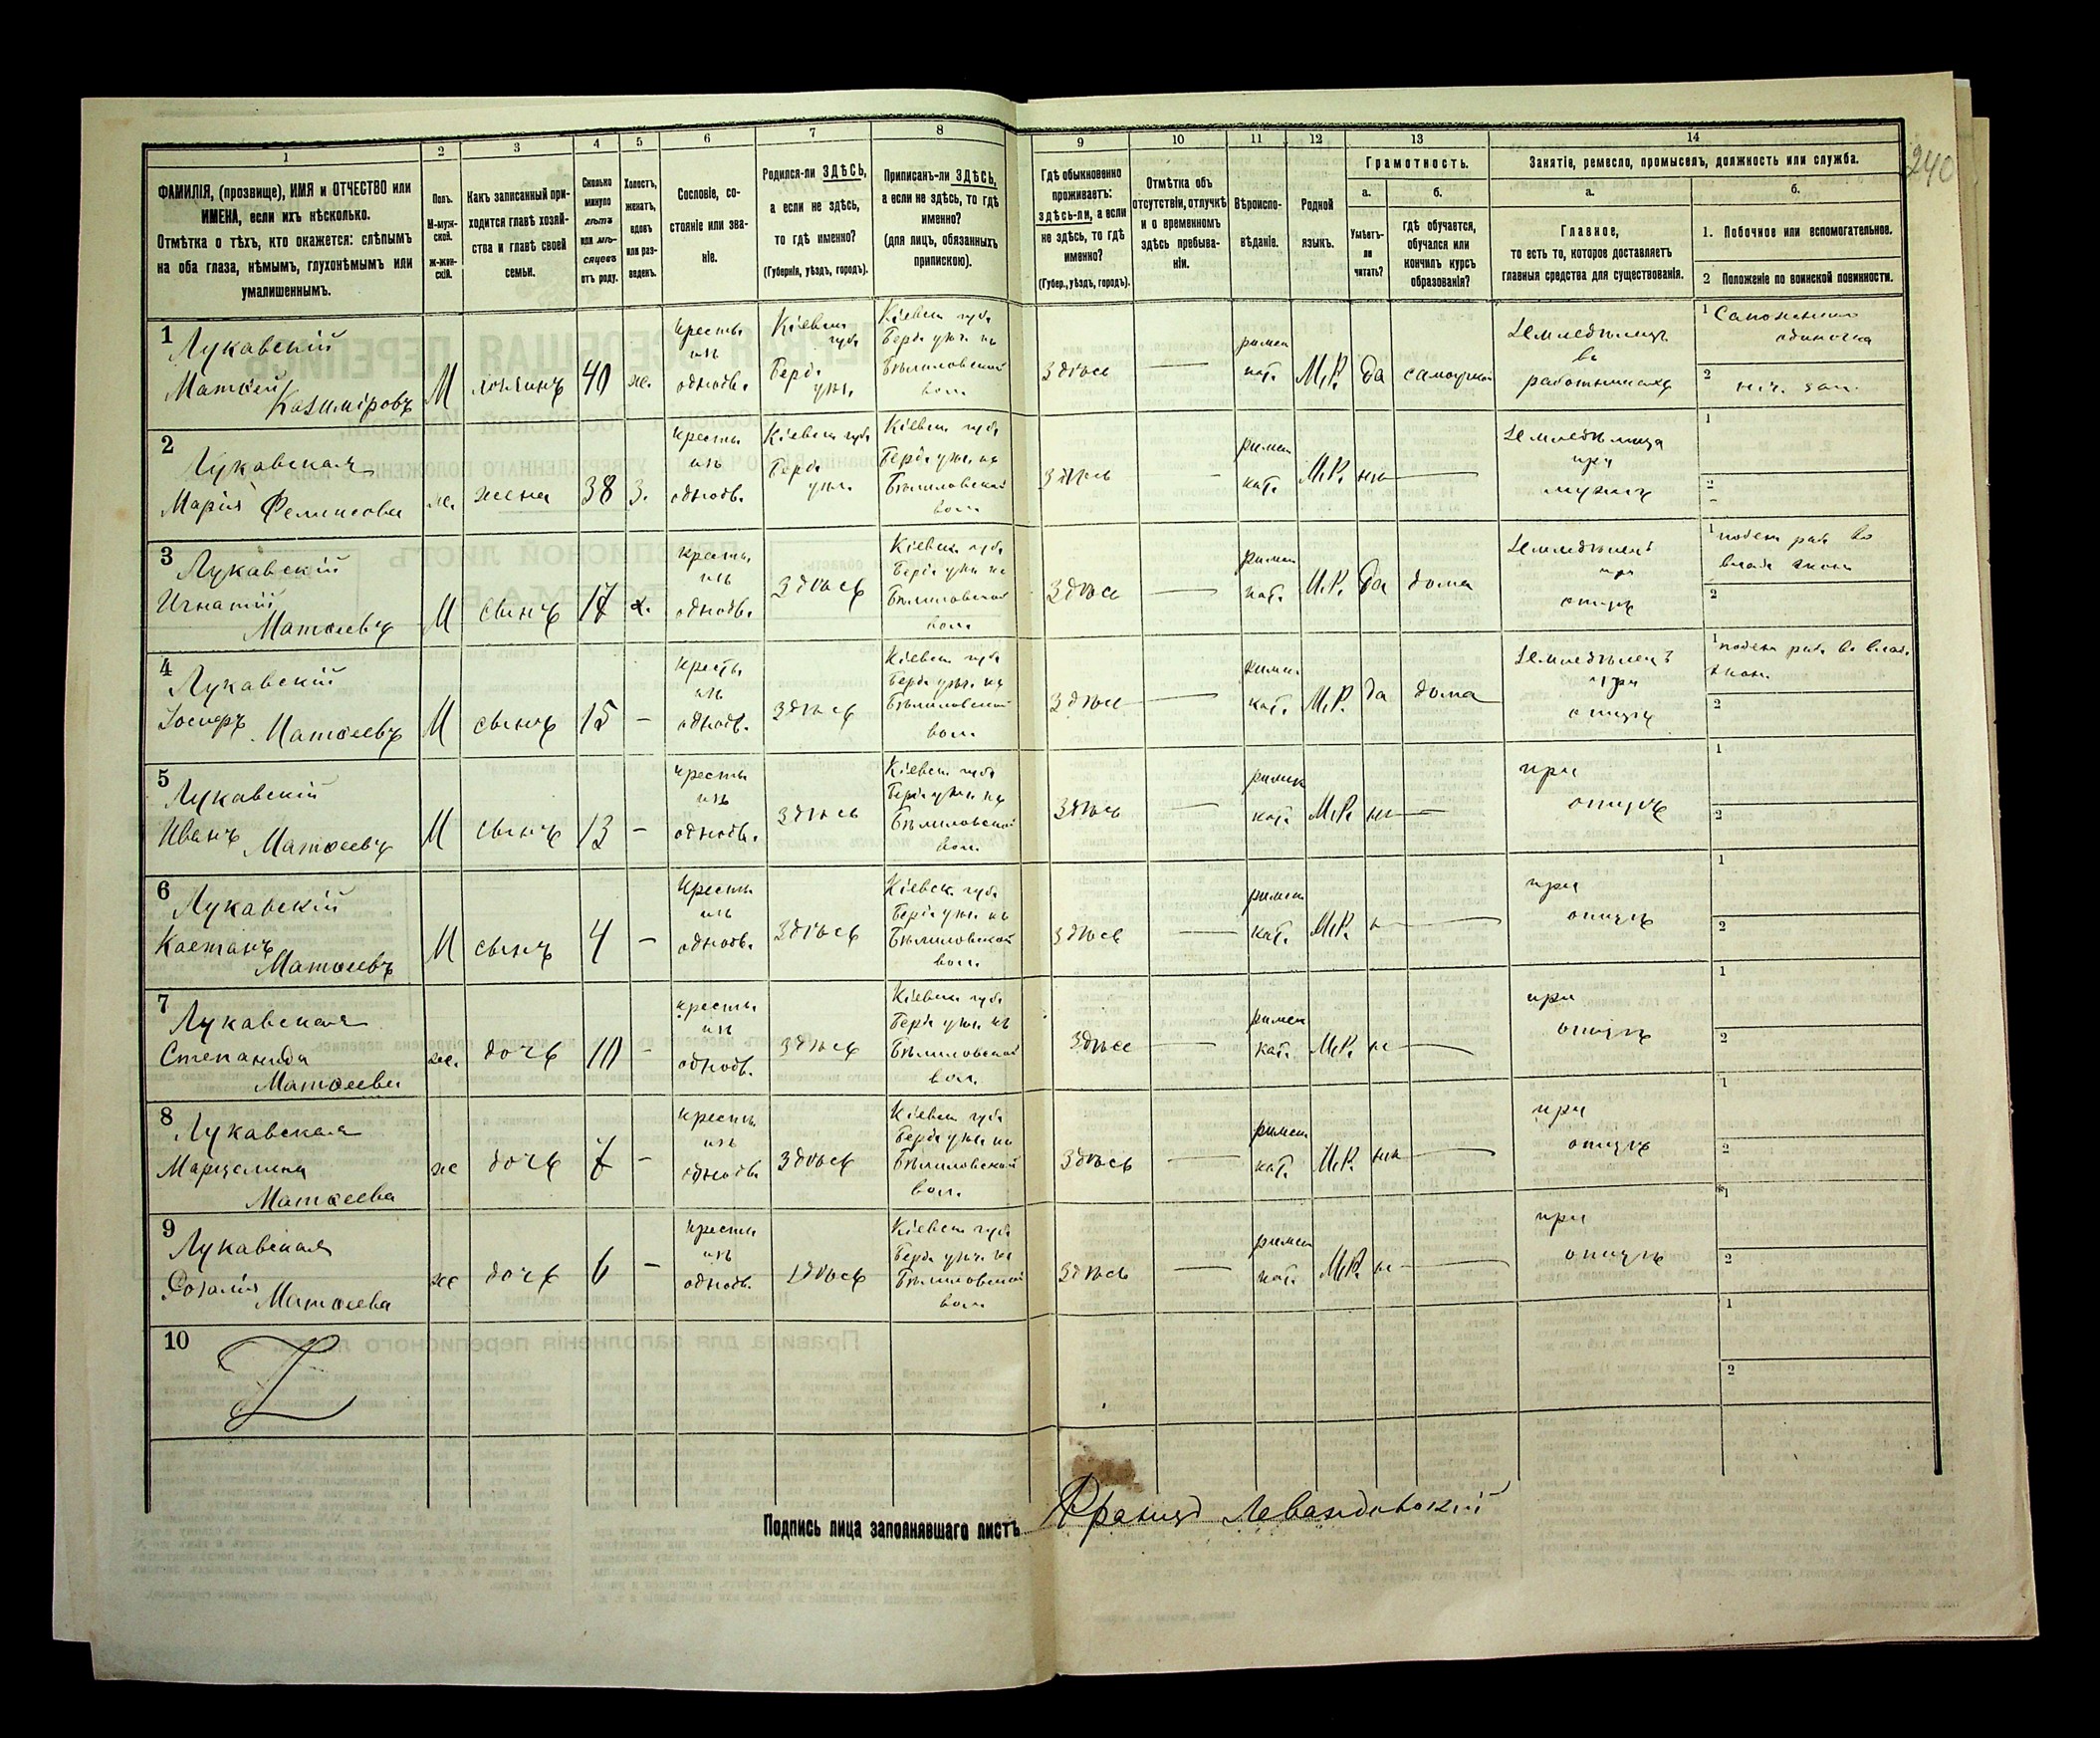 240
1
2
3
4
5
6
7
8
9
10
11
12
13
14
ФАМИЛІЯ, (прозвище), ИМЯ и ОТЧЕСТВО или
ИМЕНА, если ихъ нѣсколько.
Отмѣтка о тѣхъ, кто окажется: слѣпымъ
на оба глаза, нѣмымъ, глухонѣмымъ или
умалишеннымъ.
Полъ.
М-муж-
ской.
ж-жен-
скій.
Какъ записанный при-
ходится главѣ хозяй-
ства и главѣ своей
семьи.
Сколько
минуло
лѣтъ
или мѣ-
сяцевъ
отъ роду.
Холостъ,
женатъ,
вдовъ
или раз-
веденъ.
Сословіе, со-
стояніе или зва-
ніе.
Родился-ли ЗДѢСЬ,
а если не здѣсь,
то гдѣ именно?
(Губернія, уѣздъ, городъ).
Приписанъ-ли ЗДѢСЬ,
а если не здѣсь, то гдѣ
именно?
(для лицъ, обязанныхъ
припискою).
Гдѣ обыкновенно
проживаетъ:
здѣсь-ли, а если
не здѣсь, то гдѣ
именно?
(Губер., уѣздъ, городъ).
Отмѣтка объ
отсутствіи, отлучкѣ
и о временномъ
здѣсь пребыва-
ніи.
Вѣроиспо-
вѣданіе.
Родной
языкъ.
Грамотность.
а.
б.
Умѣетъ-
ли
читать?
гдѣ обучается,
обучался или
кончилъ курсъ
образованія?
Занятіе, ремесло, промыселъ, должность или служба.
а.
б.
Главное,
то есть то, которое доставляетъ
главныя средства для существованія.
1. Побочное или вспомогательное.
2 Положеніе по воинской повинности.
1
Лукавскій
Матѳей
Казиміровъ
М
хозяинъ
40
ж.
кресть.
изъ
однодв.
Кіевск.
губ.
Берд.
уѣз.
Кіевск. губ.
Берд. уѣз.
Бѣлиловской
вол.
Здѣсь
римск.
кат.
М.Р.
да
самоучкой
Земледѣлецъ
1
2
2
Лукавская
Марія
ж.
жена
38
З.
кресть.
изъ
однодв.
Кіевск. губ.
Берд.
уѣз.
Кіевск. губ.
Берд. уѣз.
Бѣлиловской
вол.
Здѣсь
римск.
кат.
М.Р.
нѣ
Земледѣлица
при
мужѣ
1
2
3
Лукавскій
Игнатій
Матѳеевъ
М
сынъ
17
х.
кресть.
изъ
однодв.
Здѣсь
Кіевск. губ.
Берд. уѣз.
Бѣлиловской
вол.
Здѣсь
римск.
кат.
М.Р.
да
дома
Земледѣлецъ
при
отцѣ
1 поден. раб. во
влад. экон.
2
4
Лукавскій
Іосифъ
Матѳеевъ
М
сынъ
15
кресть.
изъ
однодв.
Здѣсь
Кіевск. губ.
Берд. уѣз.
Бѣлиловской
вол.
Здѣсь
римск.
кат.
М.Р.
да
дома
Земледѣлецъ
при
отцѣ
1 поден. раб. во влад.
экон.
2
5
Лукавскій
Иванъ
Матѳеевъ
М
сынъ
13
кресть.
изъ
однодв.
Здѣсь
Кіевск. губ.
Берд. уѣз.
Бѣлиловской
вол.
Здѣсь
римск.
кат.
М.Р.
нѣ
при
отцѣ
1
2
6
Лукавскій
Каетанъ
Матѳеевъ
М
сынъ
4
кресть.
изъ
однодв.
Здѣсь
Кіевск. губ.
Берд. уѣз.
Бѣлиловской
вол.
Здѣсь
римск.
кат.
М.Р.
при
отцѣ
1
2
7
Лукавская
Степанида
Матѳеева
ж.
дочь
10
кресть.
изъ
однодв.
Здѣсь
Кіевск. губ.
Берд. уѣз.
Бѣлиловской
вол.
Здѣсь
римск.
кат.
М.Р.
при
отцѣ
1
2
8
Лукавская
Марцелина
Матѳеева
ж
дочь
7
кресть.
изъ
однодв.
Здѣсь
Кіевск. губ.
Берд. уѣз.
Бѣлиловской
вол.
Здѣсь
римск.
кат.
М.Р.
нѣ
при
отцѣ
1
2
9
Лукавская
Розалія
Матѳеева
ж
дочь
6
кресть.
изъ
однодв.
Здѣсь
Кіевск. губ.
Берд. уѣз.
Бѣлиловской
вол.
Здѣсь
римск.
кат.
М.Р.
при
отцѣ
1
2
10
1
2
Подпись лица заполнявшаго листъ
Францъ Левандовскій